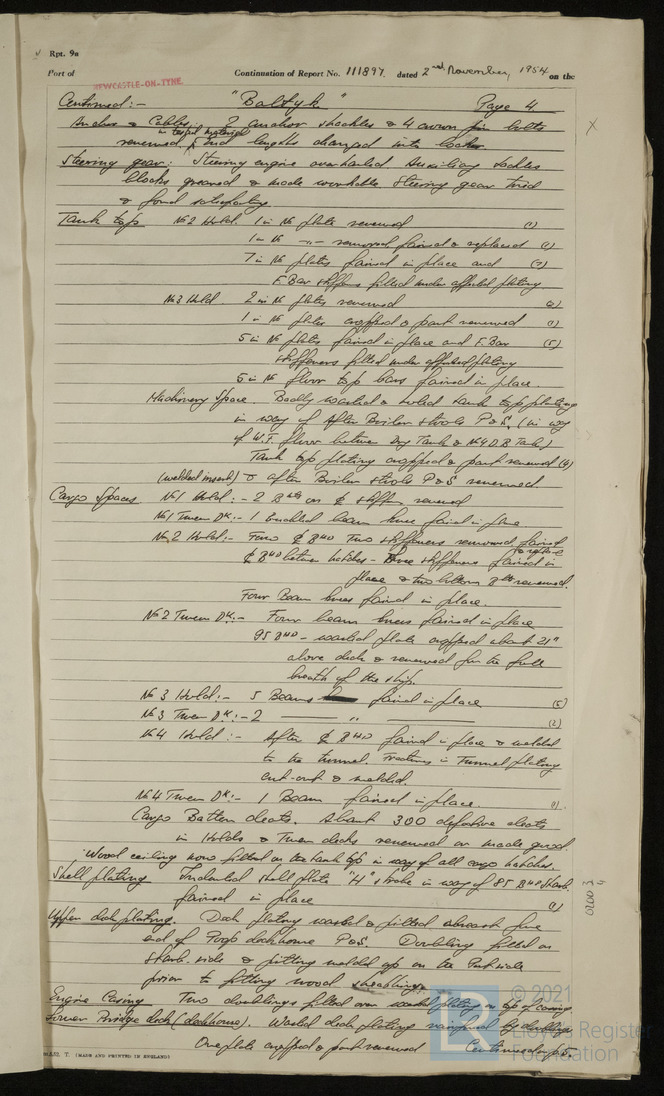 Rpt. 9a
Port of NEWCASTLE-ON-TYNE. Continuation of Report No. 111897. dated 2nd November, 1954 on the
Continued:- "Baltyk" Page 4
Anchor & Cables. 2 anchor shackles & 4 bolts
in tested material
renewed, and lengths changed into locker.
Steering gear: Steering engine overhauled. Auxiliary tackles
blocks greased & made workable. Steering gear tried
& found satisfactory.
Tank tops No 2 Hold. 1 in No plate renewed (1)
1 in No -"- removed faired & replaced (1)
7 in No plates faired in place and (7)
F. Bar stiffeners fitted under affected plating
No 3 Hold 2 in No plates renewed (2)
1 in No plates cropped & part renewed (1)
5 in No plates faired in place and F. Bar (5)
stiffeners fitted under affected plating
6 in No floor top bars faired in place.
Machinery Space. Badly wasted & holed tank top plating
in way of After Boiler stools P & S. (in way
of W.T. floor between Dry Tank & No 4 D B Tank)
Tank top plating cropped & part renewed (4)
(welded insert) & after Boiler stools P & S renewed
Cargo Spaces No 1 Hold:- 2 Bkts on ₵ stiff renewed
No 1 Tween Dk:- 1 beam knee faired in place
No 2 Hold:- Two ₵ BHD Two stiffeners removed, faired
& replaced
₵ BHD between hatches - three stiffeners faired in
place & two bottom Bkts renewed.
Four Beam knees faired in place.
No 2 Tween Dk:- Four beam knees faired in place
95 BHD - wasted plate cropped about 21"
above deck & renewed for the full
breath of the ship.
No 3 Hold:- 5 Beams faired in place (5)
No 3 Tween Dk:- 2 —— " —— (2)
No 4 Hold:- After ₵ BHD faired in place & welded
to the tunnel. Fractures in Tunnel plating
cut-out & welded.
No 4 Tween Dk:- 1 Beam faired in place. (1)
Cargo Batten cleats. About 300 defective cleats
in Holds & Tween decks renewed or made good.
Wood ceiling now fitted on the tank top in way of all cargo hatches.
Shell plating Indented shell plate "H" strake in way of 85 BHD Starb.
faired in place (1)
Upper deck plating. Deck plating wasted & pitted abreast fore
end of Poop deckhouse P & S. Doubling fitted on
starb. side & pitting welded up on the Port side
prior to fitting wood sheathing.
Engine Casing Two doublings fitted over wasted plating on top of casing
Lower Bridge deck (deckhouse). Wasted deck plating reinforced by doublings
One plate cropped & part renewed Continued p 5.
(MADE AND PRINTED IN ENGLAND)
© 2021
Lloyd's Register
Foundation